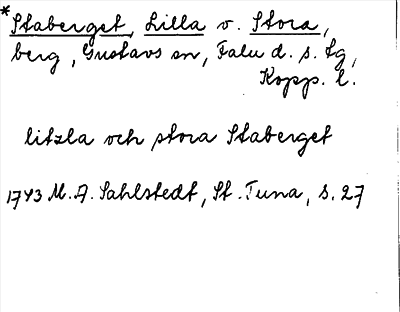 *Staberget, Lilla o. Stora,
berg, Gustavs sn, Falu d. s. tg,
Kopp. l.
litzla och stora Staberget
1743 M. A. Sahlstedt, St. Tuna, s. 27